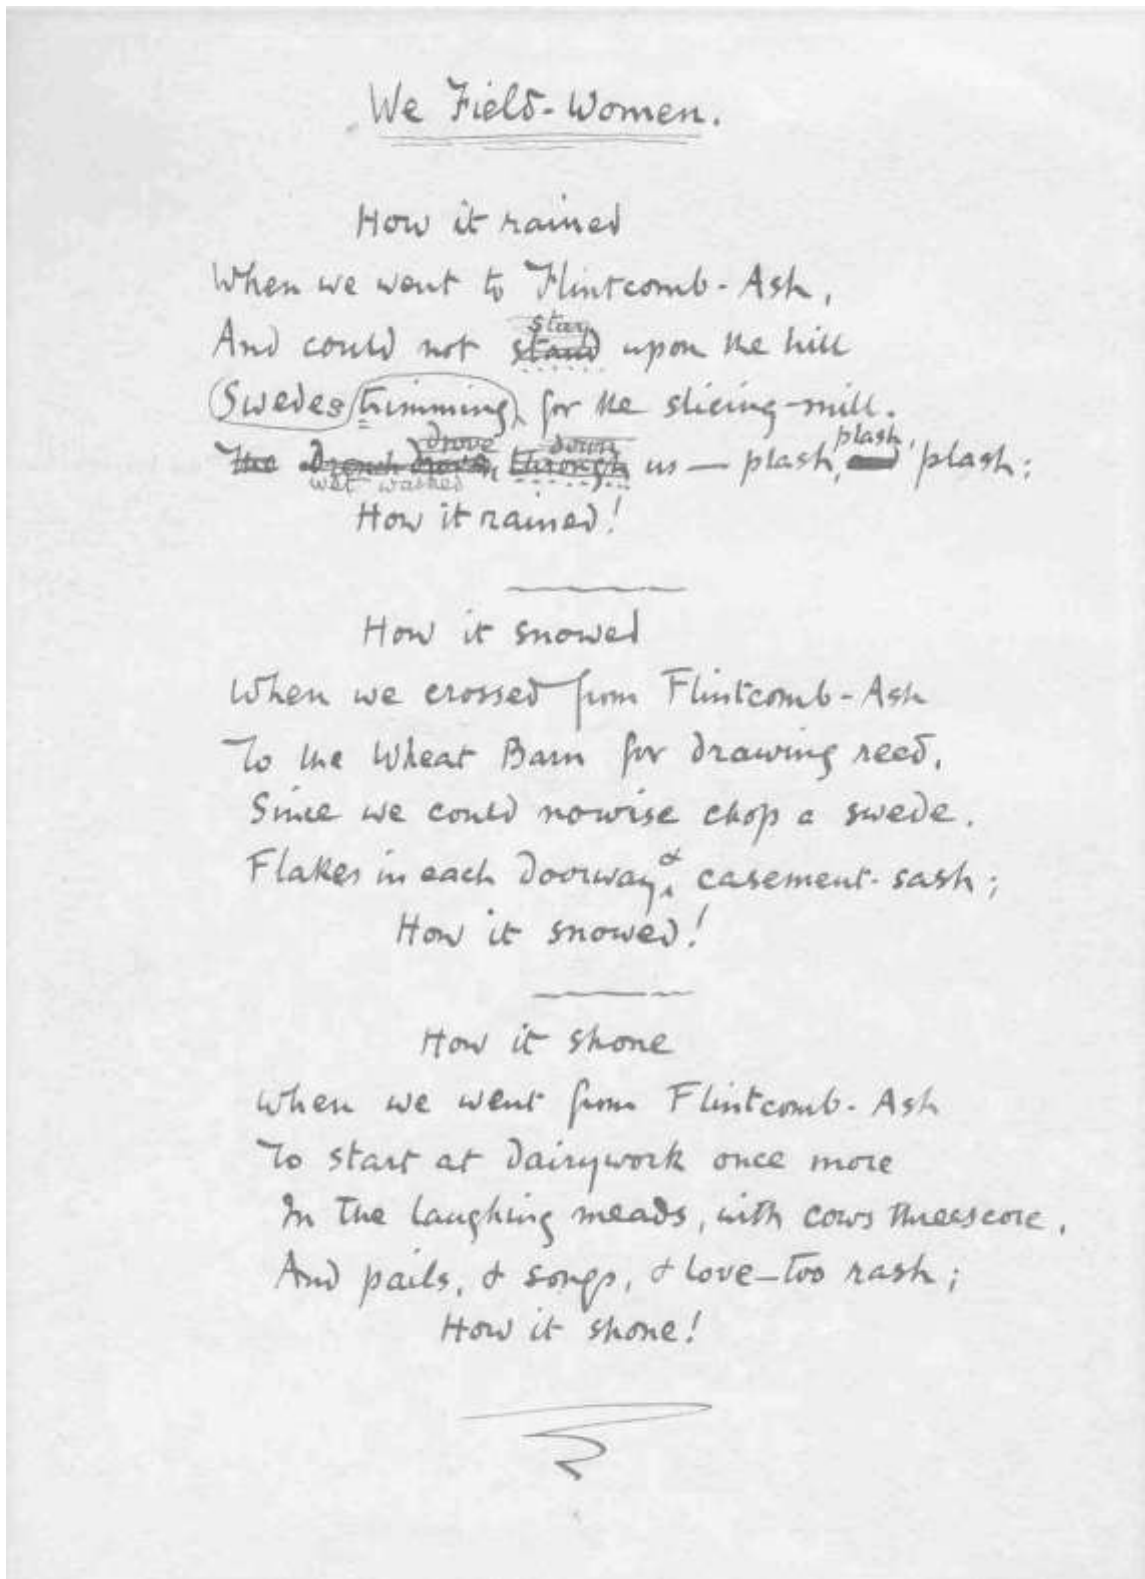 We Field-Women.
How it rained
When we went to Flintcomb-Ash,
stay
And could not stand upon the hill
Swedes trimming for the slicing-mill.
drove down plash,
The drench drove through us — plash, plash:
wet washed
How it rained!
How it snowed
When we crossed from Flintcomb-Ash
To the Wheat Barn for drawing reed,
Since we could nowise chop a swede.
Flakes in each doorway & casement-sash;
How it snowed!
How it shone
When we went from Flintcomb-Ash
To start at dairywork once more
In the laughing meads, with cows threescore,
And pails, & songs, & love—too rash;
How it shone!